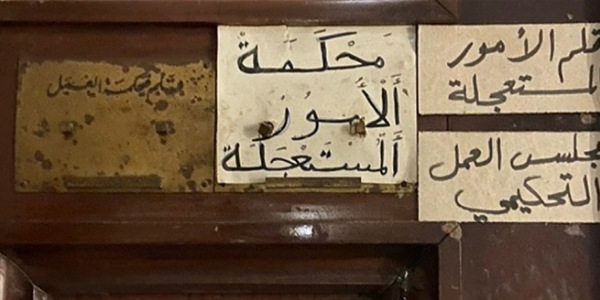 محكمة
الأمور
المستعجلة
قلم الأمور
المستعجلة
مجلس العمل
التحكيمي